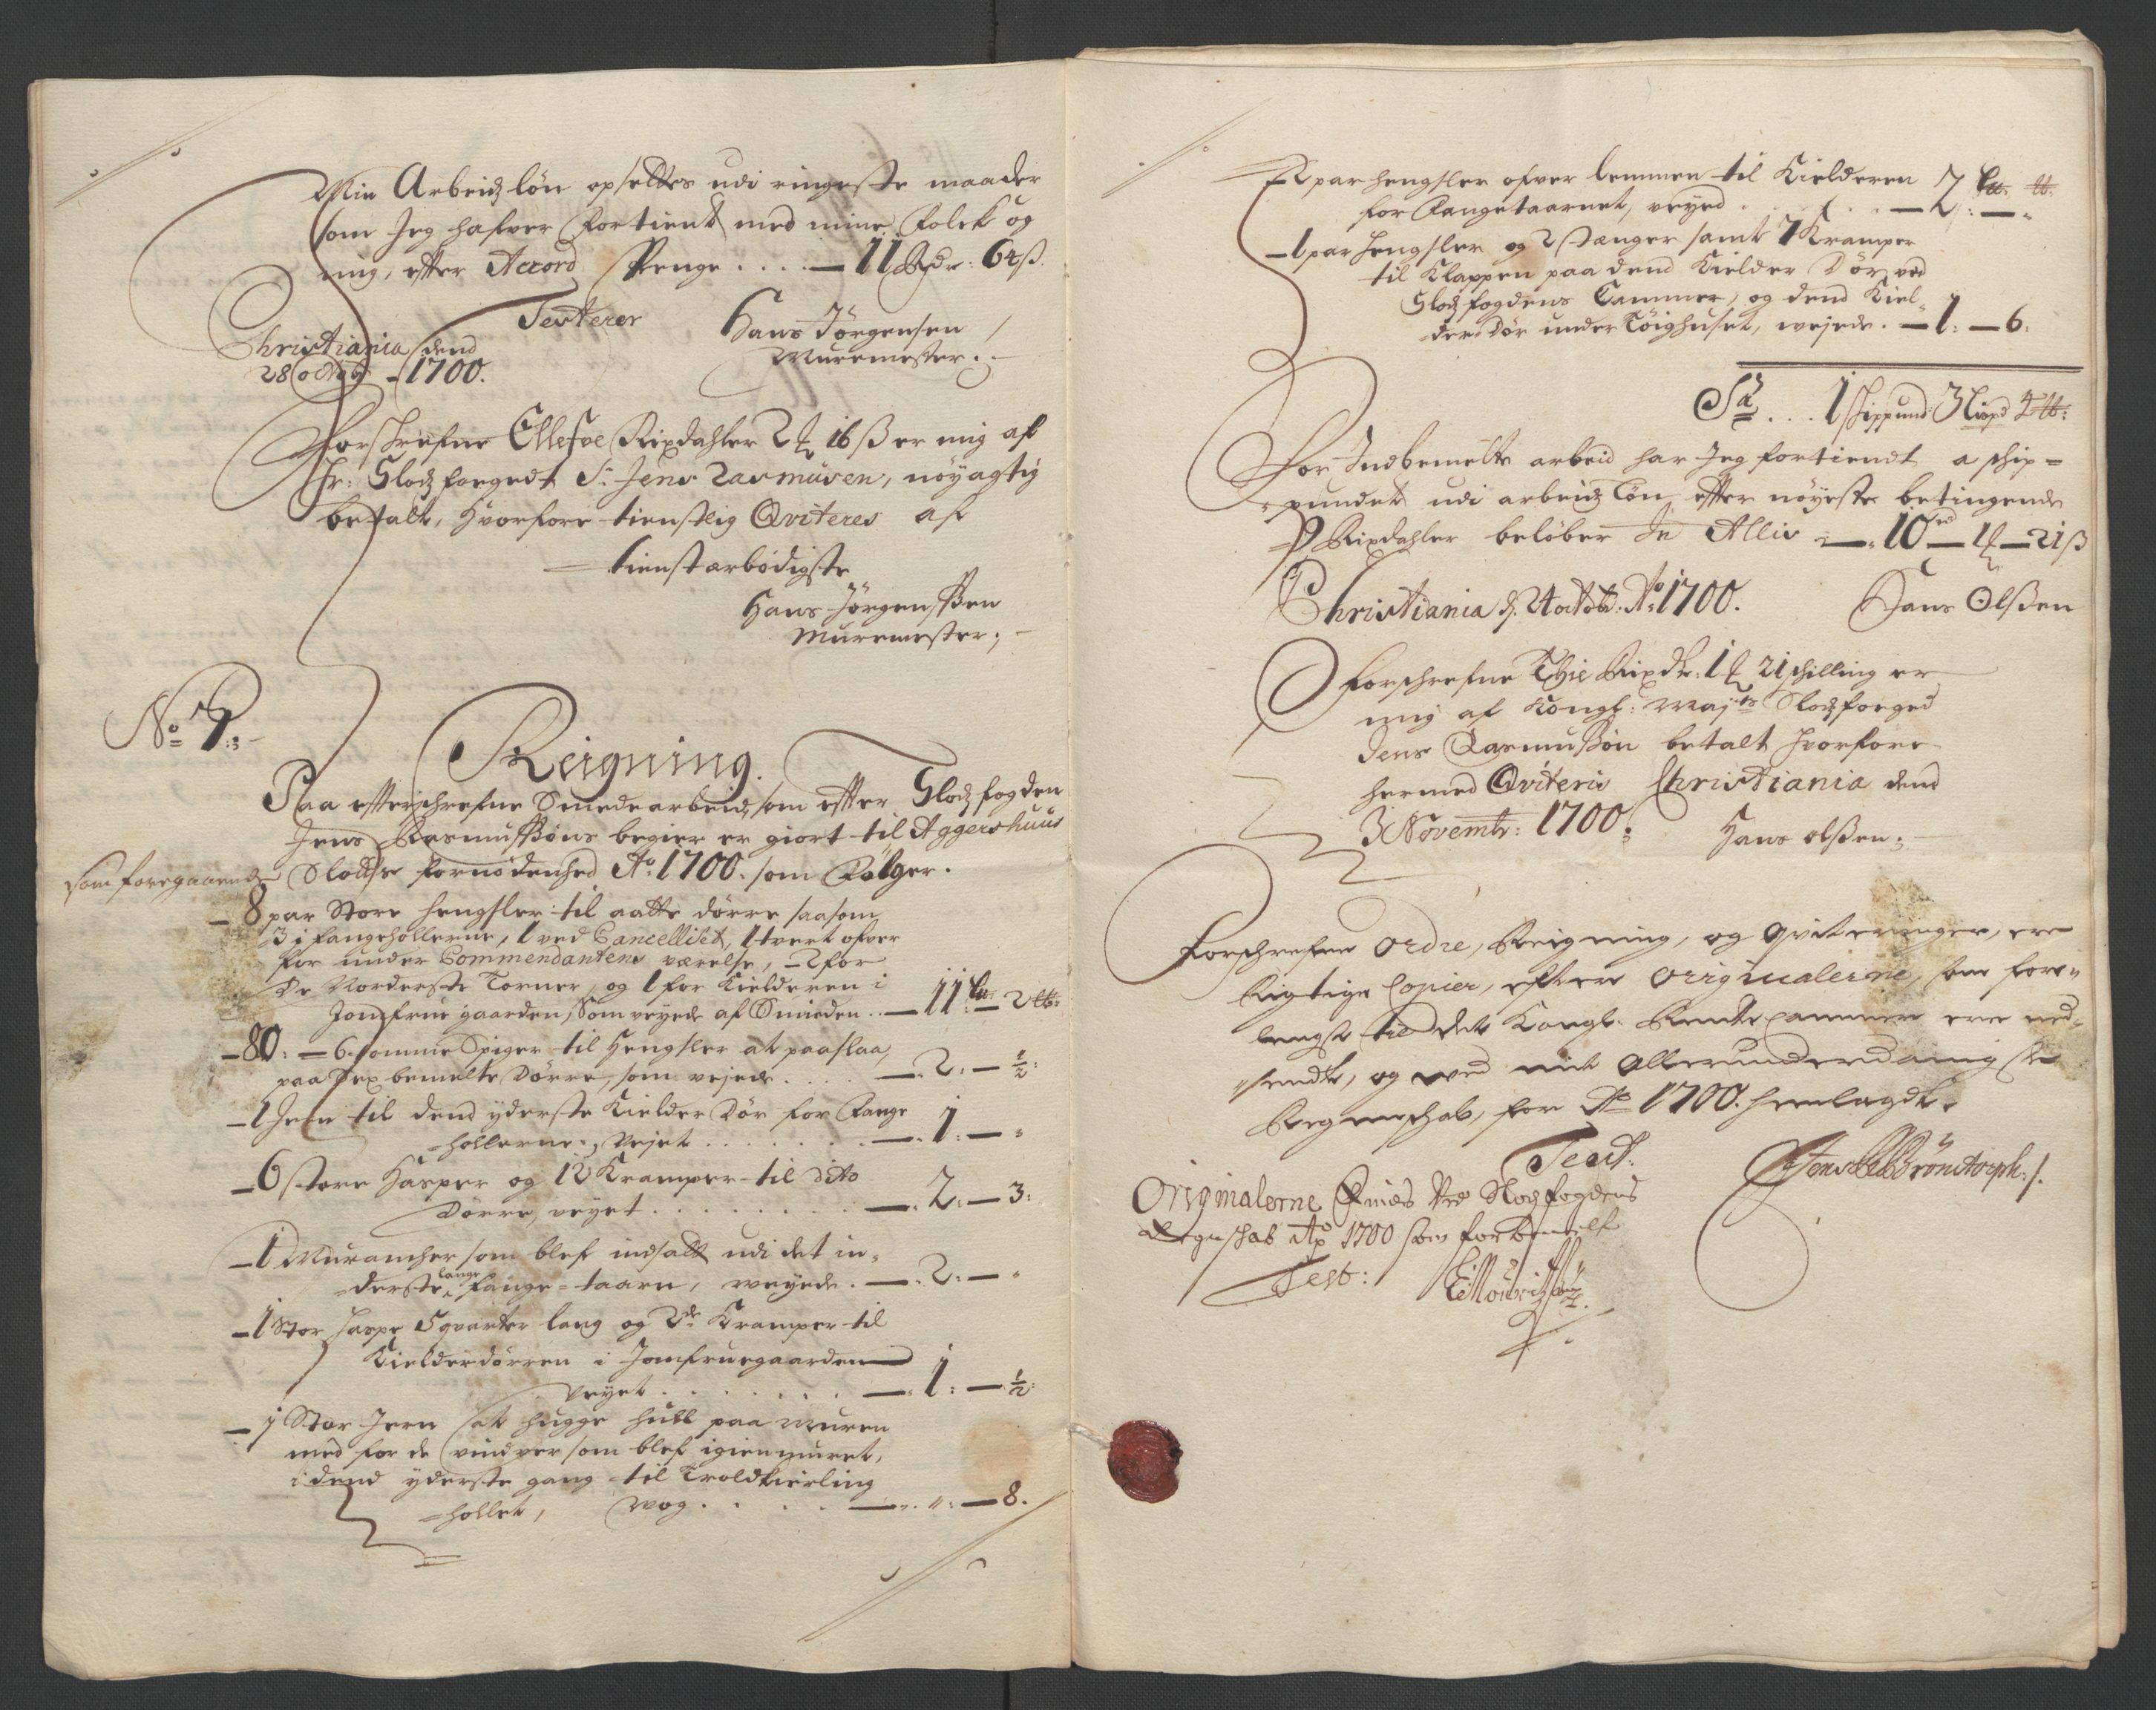 Min Arbeidz løn opsettes udi ringeste maader
som Jeg hafver fortient med mine folck og
mig, efter Accord Penge . . . . — 11 Rdr: 64 ß.
Testerer
Hans Jørgensen
Christiania dend
Muremester.
28 octobr - 1700.
Forschrefne Ellefve Rixdahler 2 ₰ 16 ß er mig af
Hr: Slodz fogedt Sr. Jens Rasmusen, nøyagtig
betalt, hvorfore tienstlig Qviteres af
tienstarbødigste
Hans Jørgensßen
Muremester;
No 7:
Reigning.
Paa efterschrefne Smedearbeid, som efter Slodz fogden
Jens Rasmusßøns begier er giort til Aggershuus
som foregaaende Slottz fornødenhed Ao. 1700. som Følger.
— 8 par Store hengsler til aatte dørre saasom
3 i fangehollerne, 1 ved Cancelliet, 1 tvert ofver
for under Commendantens værelse, — 2 for
De Norderste Torner, og 1 for Kielderen i
Jomfrue gaarden, Som veyede af Smeden . . — 11 Lu. — 2 lb:
— 80: — 6. tomme Spiger til Hengsler at paaslaa,
paa Sex bemelte Dørre, som vejede . . . . — 2: — ½:
— 1 Jern til dend yderste Kielder Dør for Fange
hollerne, Vejet . . . . . . . — 1: — "
— 6 store Hasper og 12 Kramper til dito
Dørre, veyet . . . . . . . . — 2: — 3:
— 1 Murancher som blef indsatt udi det in-
derste lange fange-taarn, weyede. — 2: — "
— 1 Stor haspe 5 qvarter lang og 2de Kramper til
Kielderdørren i Jomfruegaarden
veyet . . . . . . . — 1: — ½:
— 1 Stor Jern at hugge hull paa muren
med for de vindver som blef igien muret,
i dend yderste gang til Troldkierling
hollet, wog . . . . — " : — 8.
— 2 par hengsler ofver lemmen til Kielderen
for Fangetaarnet, veyed . . . . — 2 Lu: — lb:
— 1 par Hengsler og 2 Stanger samt 7 Kramper
til Klappen paa dend Kielder Dør ved
Slodz fogdens Cammer, og dend Kiel-
der Dør under Tøighuset, wejede. — 1: — 6:
Sa . . . 1 schippund 3 lispd 4 lb:
For Indbemelte arbeid har Jeg fortiendt a schip-
pundet udi arbeidz løn efter nøyeste betingende
9 Rixdahler beløber In Allis — 10 rd — 1 ₰ — 21 ß
Christiania d. 2 octobr: Ao 1700. Hans Olsßen
Forschrefne Thie Rixdr: 1 ₰ 21 schilling er
mig af Kongl: Maj:ts Slodzfoged
Jens Rasmusßøn betalt hvorfore
hermed Qviteris Christiania dend
3 Novembr: 1700. Hans olsßen;
Forschrefne Ordre, Reigning, og Qviteringer, ere
Rigtige Copier, efter Originalerne, som for-
lengst til det Kongl. Rente Cammer ere ned-
sendt, og ved mit Allerunderdanigste
Regenschab, for Ao 1700. henlagdt.
Test:
Originalerne Findes Ved Slodzfogdens
Regnschab Ao 1700 som forbemelt
Test: